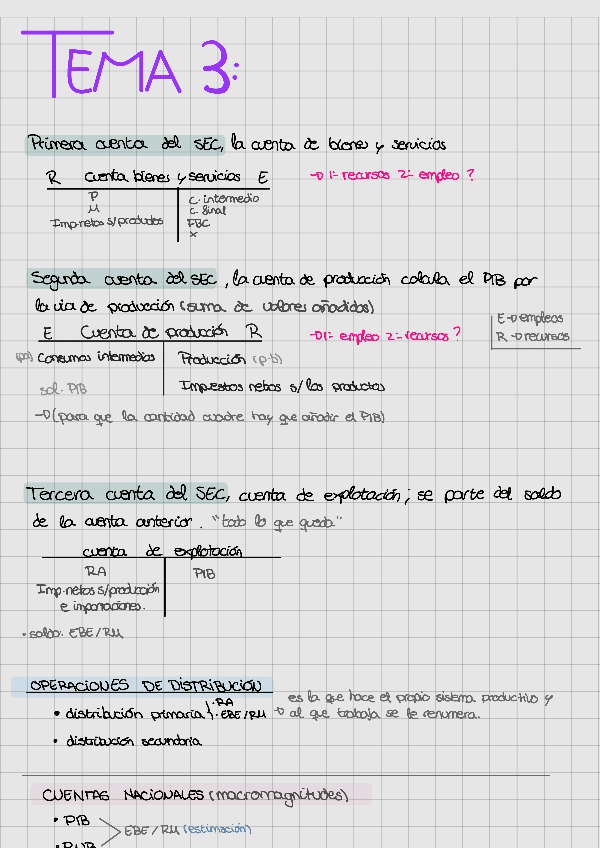 TEMA 3:
Primera cuenta del SEC, la cuenta de bienes y servicios
R cuenta bienes y servicios E → 1º recursos 2º empleo ?
P C. intermedio
M C. final
Imp. netos s/productos FBC
X
Segunda cuenta del SEC, la cuenta de producción calcula el PIB por
la via de producción (suma de valores añadidos)
E Cuenta de producción R → 1º empleo 2º recursos ?
E → empleos
R → recursos
(pa) Consumos intermedios Producción (p.b)
sol. PIB Impuestos netos s/ los productos
→ (para que la cantidad cuadre hay que añadir el PIB)
Tercera cuenta del SEC, cuenta de explotación; se parte del saldo
de la cuenta anterior. "todo lo que queda"
cuenta de explotación
RA PIB
Imp. netos s/producción
e importaciones.
• saldo: EBE/RM
OPERACIONES DE DISTRIBUCIÓN
• distribución primaria • RA • EBE/RM → es la que hace el propio sistema productivo y
al que trabaja se le renumera.
• distribución secundaria
CUENTAS NACIONALES (macromagnitudes)
• PIB
EBE / RM (estimación)